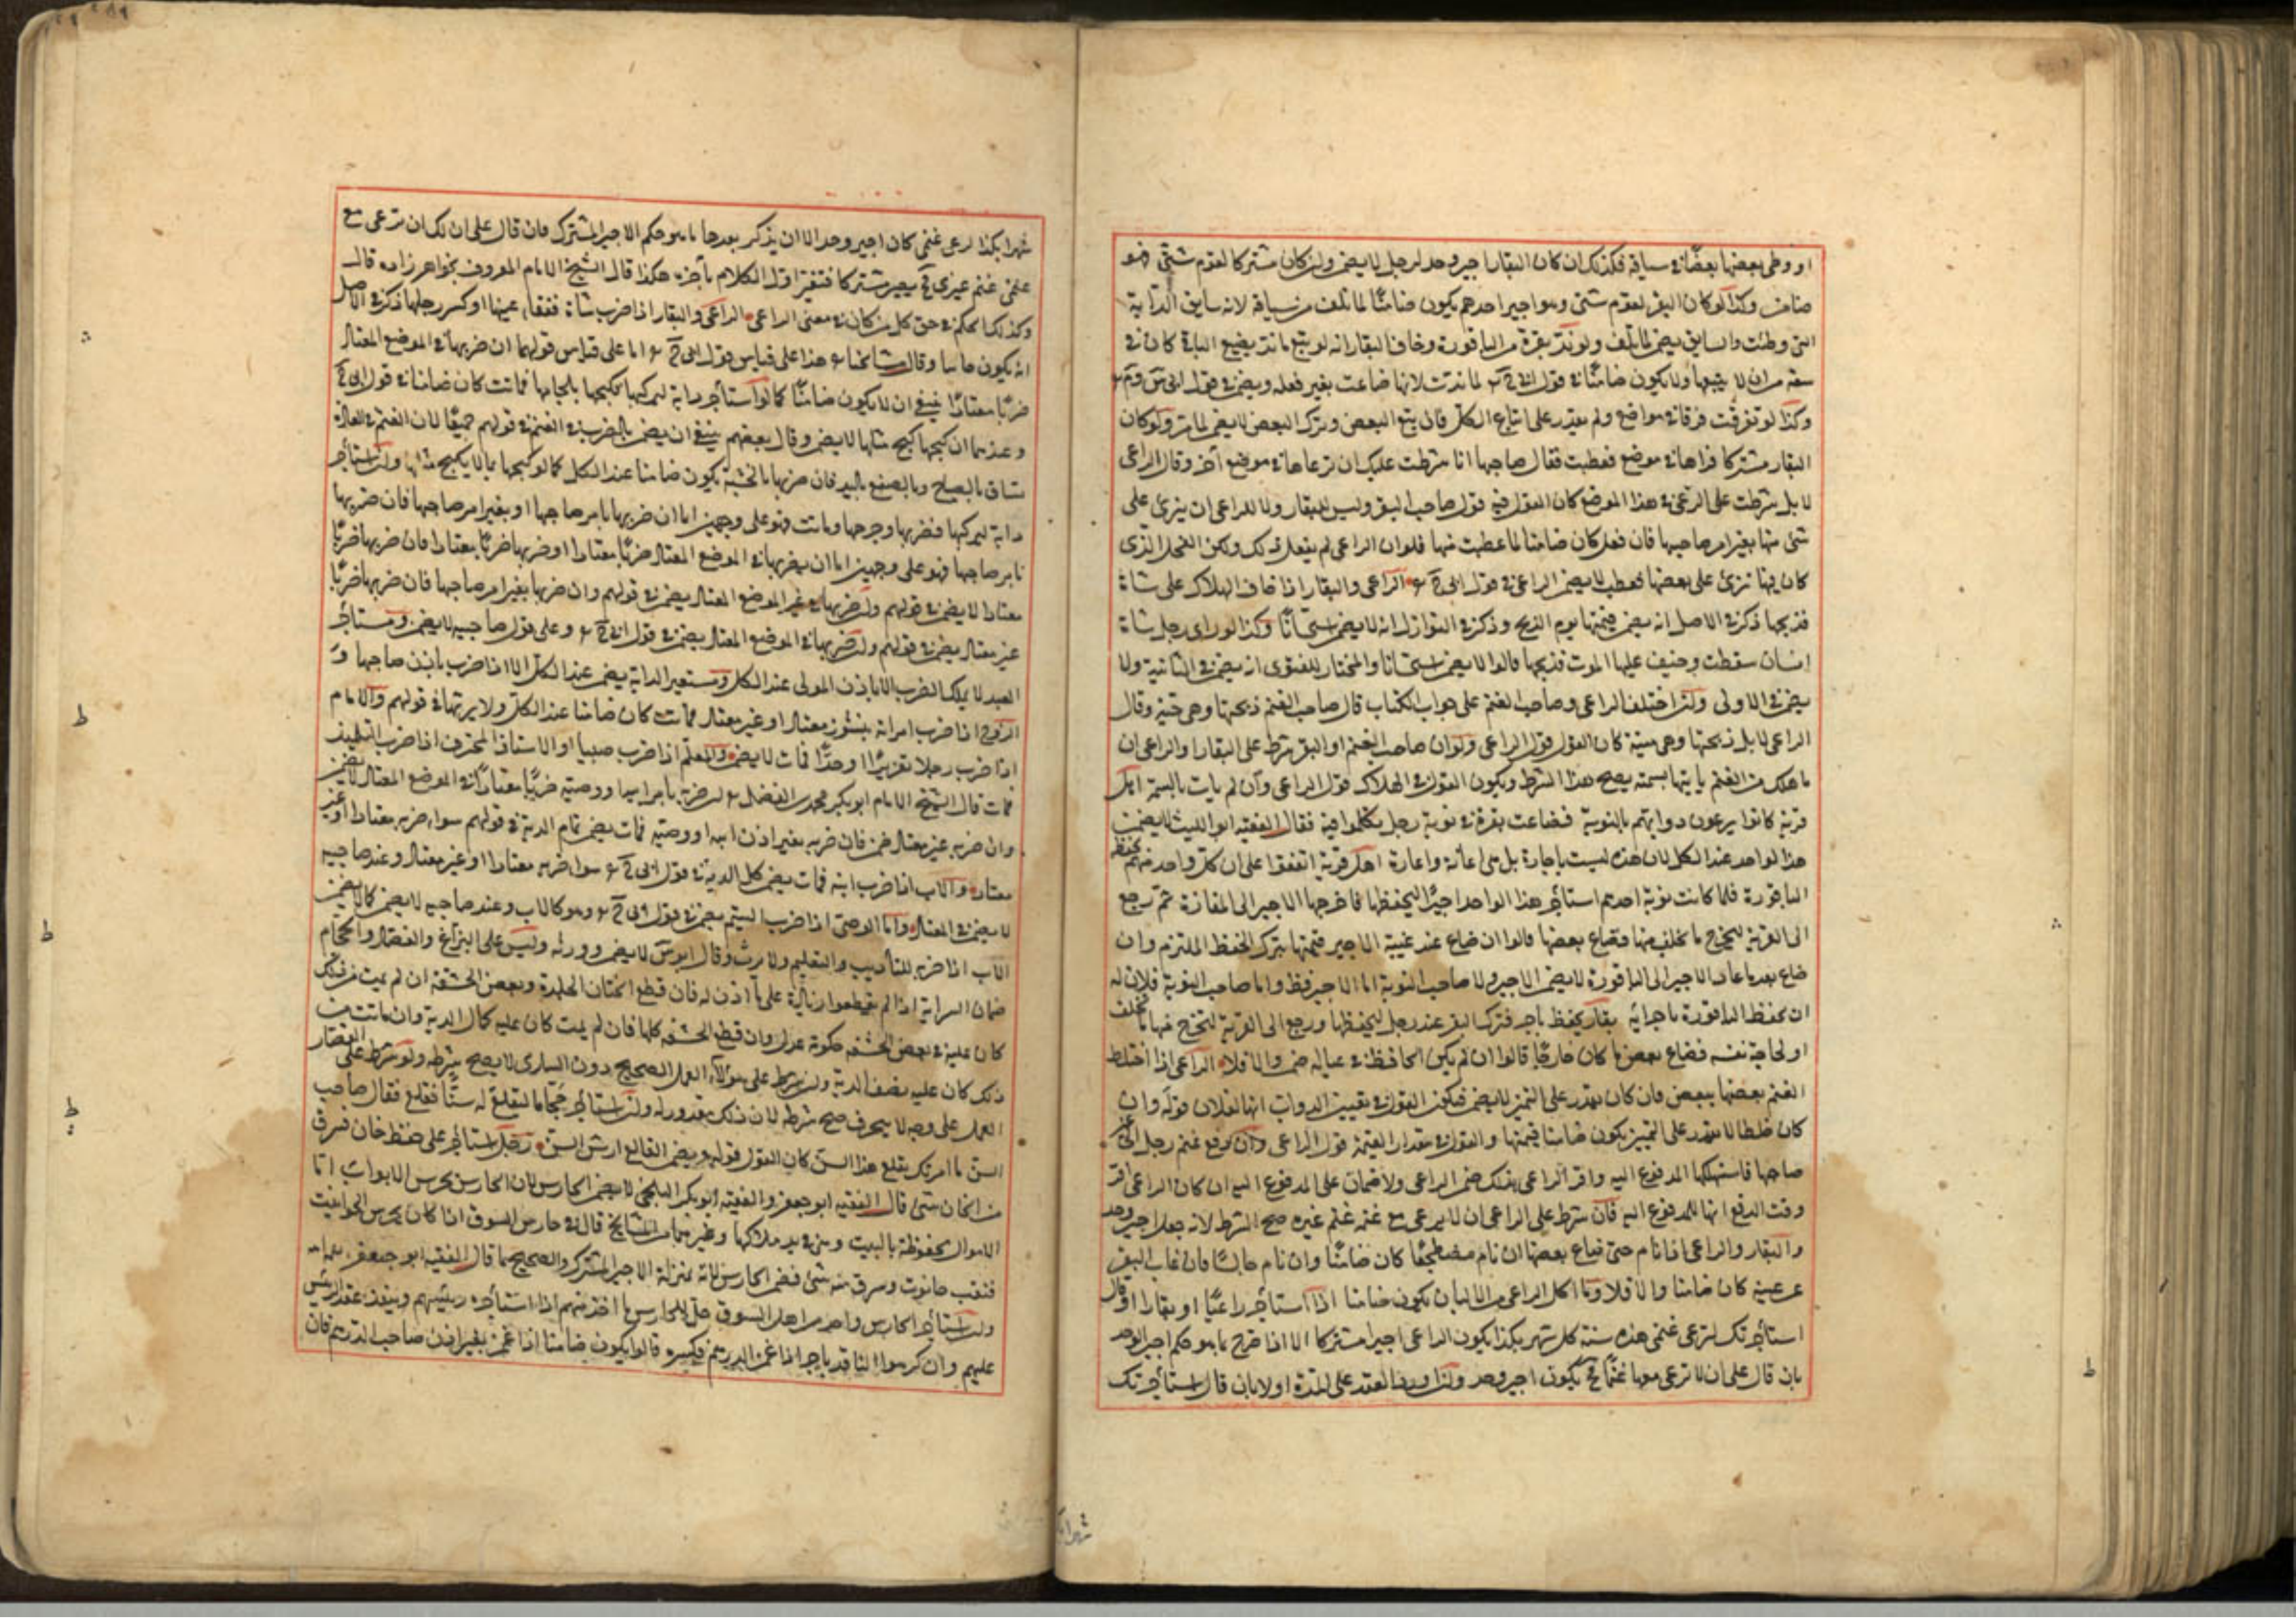 او وطئ بعضها بعضا في سياقه فكذلك ان كان البقار اجير وحد لرجل لا يضمن وان كان مشتركا لقوم شتى فهو
ضامن وكذا لو كان البقر لقوم شتى وهو اجير احدهم يكون ضامنا لما تلف من سياقه لانه سايق الدابة
التي وطئت والسايق يضمن لما تلف ولو ندت بقرة من الباقورة وخاف البقار انه لو يتبع ما ند يضيع الباقي كان في
سعة من ان لا يتبعها ولا يكون ضامنا في قول ابي ح لما ندت لانها ضاعت بغير فعله ويضمن في قول ابي س وم
وكذا لو تفرقت فرقا في مواضع ولم يقدر على اتباع الكل فان يتبع البعض وترك البعض لا يضمن لما مر ولو كان
البقار مشتركا فراعاها في موضع فعطبت فقال صاحبها انا شرطت عليك ان ترعاها في موضع آخر وقال الراعي
لا بل شرطت على الرعي في هذا الموضع كان القول فيه قول صاحب البقر وليس للبقار ولا للراعي ان ينزي على
شيء منها بغير امر صاحبها فان فعل كان ضامنا لما عطبت منها فلو ان الراعي لم يفعل ذلك ولكن الفحل الذي
كان فيها نزى على بعضها فعطب لا يضمن الراعي في قول ابي ح الراعي والبقار اذا خاف الهلاك على شاة
فذبحها ذكر في الاصل انه يضمن قيمتها يوم الذبح وذكر في النوازل انه لا يضمن استحسانا وكذا لو راى رجل شاة
انسان سقطت وخيف عليها الموت فذبحها قالوا لا يضمن استحسانا والمختار للفتوى انه يضمن في الثانية ولا
يضمن في الاولى ولو اختلف الراعي وصاحب الغنم على جواب الكتاب قال صاحب الغنم ذبحتها وهي حية وقال
الراعي لا بل ذبحتها وهي ميتة كان القول قول الراعي ولو ان صاحب الغنم او البقر شرط على البقار او الراعي ان
ما هلك من الغنم يأتيها بسمة يصح هذا الشرط ويكون القول في الهلاك قول الراعي وان لم يات بالسمة اهل
قرية كانوا يرعون دوابهم بالنوبة فضاعت بقرة في نوبة رجل تكلموا فيه فقال الفقيه ابو الليث لا يضمن
هذا الواحد عند الكل لان هذه ليست باجارة بل هي اعانة واعارة اهل قرية اتفقوا على ان كل واحد منهم يحفظ
الباقورة فلما كانت نوبة احدهم استأجر هذا الواحد اجيرا ليحفظها فاخرجها الاجير الى المفازة ثم رجع
الى القرية ليخرج ما تخلف منها فضاع بعضها قالوا ان ضاع عند غيبة الاجير ضمنها بترك الحفظ الملتزم وان
ضاع بعد ما عاد الاجير الى الباقورة لا يضمن الاجير ولا صاحب النوبة اما الاجير فظ واما صاحب النوبة فلان له
ان يحفظ الباقورة باجرائه بقار يحفظ باجر فترك البقر عند رجل ليحفظها ورجع الى القرية ليخرج منها ما تخلف
او لحاجة نفسه فضاع بعض ما كان خارجا قالوا ان لم يكن الحافظ في عياله ضمن والا فلا الراعي اذا اختلط
الغنم بعضها ببعض فان كان يقدر على التميز لا يضمن فيكون القول في تعيين الدواب انها لفلان قوله وان
كان خلطا لا يقدر على التمييز يكون ضامنا قيمتها والقول في مقدار القيمة قول الراعي وان دفع غنم رجل الى غير
صاحبها فاستهلكها المدفوع اليه واقر الراعي بذلك ضمن الراعي ولا ضمان على المدفوع اليه ان كان الراعي اقر
وقت الدفع انها للمدفوع اليه فان شرط على الراعي ان لا يرعى مع غنمه غنم غيره صح الشرط لانه جعله اجير وحد
والبقار والراعي اذا نام حتى ضاع بعضها ان نام مضطجعا كان ضامنا وان نام جالسا فان غاب البقر
عن عينه كان ضامنا والا فلا وما اكل الراعي من الالبان يكون ضامنا اذا استأجر راعيا او بقارا او قال
استأجرتك لترعى غنمي هذه سنة كل شهر بكذا يكون الراعي اجيرا مشتركا الا اذا خرج ما هو حكم اجير الوحد
بان قال على ان لا ترعى معها غنما يكون اجير وحد ولو اورد العقد على المدة اولا بان قال استأجرتك
شهرا بكذا
شهرا بكذا لرعي غنمي كان اجير وحد الا ان يذكر بعدها ما هو حكم الاجير المشترك فان قال على ان لك ان ترعى مع
غنمي غنم غيري يصير مشتركا فتغير اول الكلام بآخره هكذا قال الشيخ الامام المعروف بخواهرزاده قال
وكذلك الحكم في حق كل من كان في معنى الراعي الراعي والبقار اذا ضرب شاة ففقأ عينها او كسر رجلها ذكر في الاصل
انه يكون ضامنا وقال مشايخنا هذا على قياس قول ابي ح اما على قياس قولهما ان ضربها في الموضع المعتاد
ضربا معتادا ينبغي ان لا يكون ضامنا كما لو استأجر دابة ليركبها فكبحها بلجامها فماتت كان ضامنا في قول ابي ح
وعندهما ان كبحها كبح مثلها لا يضمن وقال بعضهم ينبغي ان يضمن بالضرب في الغنم في قولهم جميعا لان الغنم في العادة
تساق بالصياح وبالصفع باليد فان ضربها بالخشبة يكون ضامنا عند الكل كما لو كبحها بما لا يكبح مثلها ولو استأجر
دابة ليركبها فضربها وجرحها وماتت فهو على وجهين اما ان ضربها بامر صاحبها او بغير امر صاحبها فان ضربها
بامر صاحبها فهو على وجهين اما ان يضربها في الموضع المعتاد ضربا معتادا او ضربها ضربا غير معتاد فان ضربها ضربا
معتادا لا يضمن في قولهم وان ضربها في غير الموضع المعتاد يضمن في قولهم وان ضربها بغير امر صاحبها فان ضربها ضربا
غير معتاد يضمن في قولهم وان ضربها في الموضع المعتاد يضمن في قول ابي ح وعلى قول صاحبيه لا يضمن ومستأجر
العبد لا يملك الضرب الا باذن المولى عند الكل ومستعير الدابة يضمن عند الكل الا اذا ضرب باذن صاحبها
الزوج اذا ضرب امرأته بنشوز معتاد او غير معتاد فماتت كان ضامنا عند الكل ولا يرثها في قولهم والامام
اذا ضرب رجلا تعزيرا او حدا فمات لا يضمن والمعلم اذا ضرب صبيا او الاستاذ المحترف اذا ضرب التلميذ
فمات قال الشيخ الامام ابو بكر محمد بن الفضل ان ضربه بامر ابيه او وصيه ضربا معتادا في الموضع المعتاد لا يضمن
وان ضربه غير معتاد ضمن فان ضربه بغير اذن ابيه او وصيه فمات يضمن تمام الدية في قولهم سواء ضربه معتادا او غير
معتاد والاب اذا ضرب ابنه فمات يضمن كل الدية في قول ابي ح سواء ضربه معتادا او غير معتاد وعند صاحبيه
لا يضمن في المعتاد واما الوصي اذا ضرب اليتيم يضمن في قول ابي ح وهو كالاب وعند صاحبيه لا يضمن كما لا يضمن
الاب اذا ضربه للتأديب والتعليم ولا يرث وقال ابو س لا يضمن ويرثه وليس على البزاغ والفصاد والحجام
ضمان السراية اذا لم يقطعوا زيادة على ما اذن له فان قطع الختان الجلدة وبعض الحشفة ان لم يمت من ذلك
كان عليه في بعض الحشفة حكومة عدل وان قطع الحشفة كلها فان لم يمت كان عليه كمال الدية وان مات من
ذلك كان عليه نصف الدية ولو شرط على هؤلاء العمل الصحيح دون الساري لا يصح شرطه ولو شرط على القصار
العمل على وجه لا يتخرق صح شرطه لان ذلك مقدور له ولو استأجر حجاما ليقلع له سنا فقلع فقال صاحب
السن ما امرتك بقلع هذا السن كان القول قوله ويضمن القالع ارش السن رجل استأجر على حفظ خان فسرق
من الخان شيء قال الفقيه ابو جعفر والفقيه ابو بكر البلخي لا يضمن الحارس لان الحارس يحرس الابواب اما
الاموال محفوظة بالبيت وهي في يد ملاكها وغيرهما من المشايخ قال في حارس السوق اذا كان يحرس الحوانيت
فنقب حانوت وسرق منه شيء فضمن الحارس لانه بمنزلة الاجير المشترك والصحيح ما قال الفقيه ابو جعفر
ولو استأجر الحارس واحد من اهل السوق حل للحارس ما اخذ منهم اذا استأجره رئيسهم وينفذ عقد الرئيس
عليهم وان كرهوا الناقد باجر اذا غمز الدرهم فكسره قالوا يكون ضامنا اذا غمز بغير اذن صاحب الدرهم فان